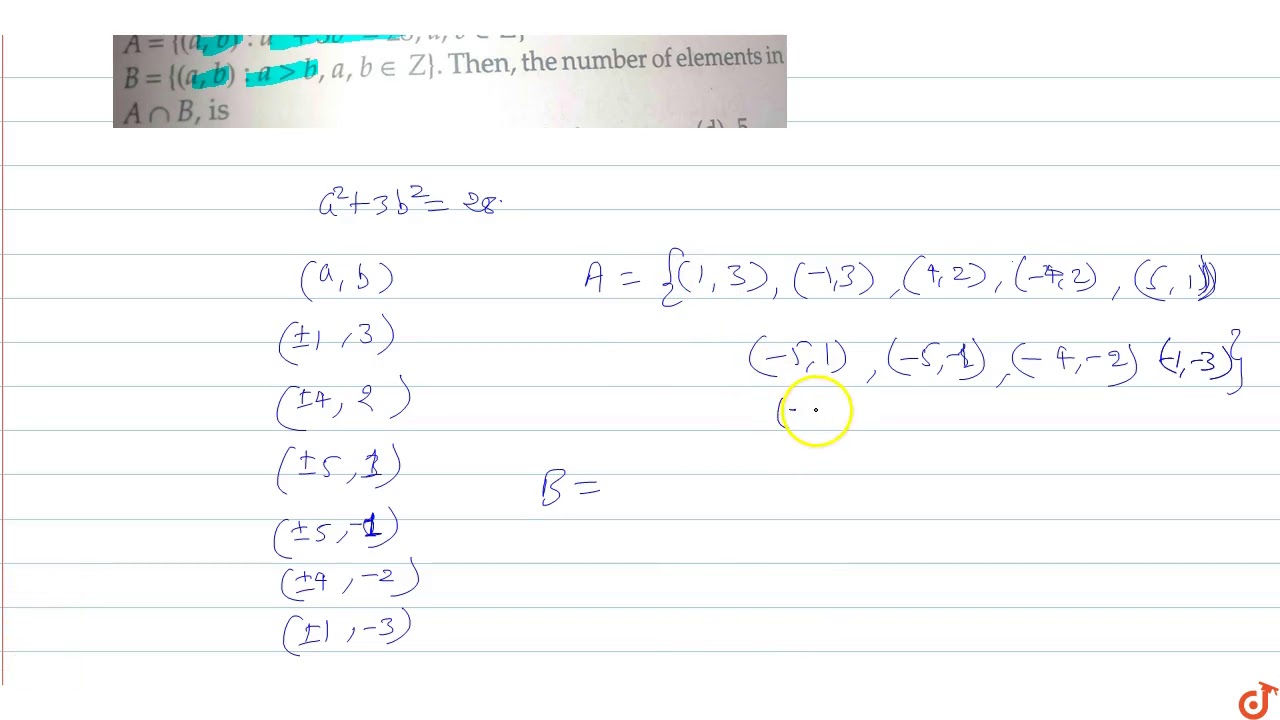 A = {(a, b) : a
B = {(a, b) : a > b, a, b ∈ Z}. Then, the number of elements in
A ∩ B, is
(d) 5
a²+3b² = 28.
(a, b)
(±1, 3)
(±4, 2)
(±5, 1)
(±5, -1)
(±4, -2)
(±1, -3)
A = {(1, 3), (-1,3), (4,2), (-4,2), (5, 1)
(-5,1), (-5,-1), (-4,-2) (-1,-3)}
(-
B =